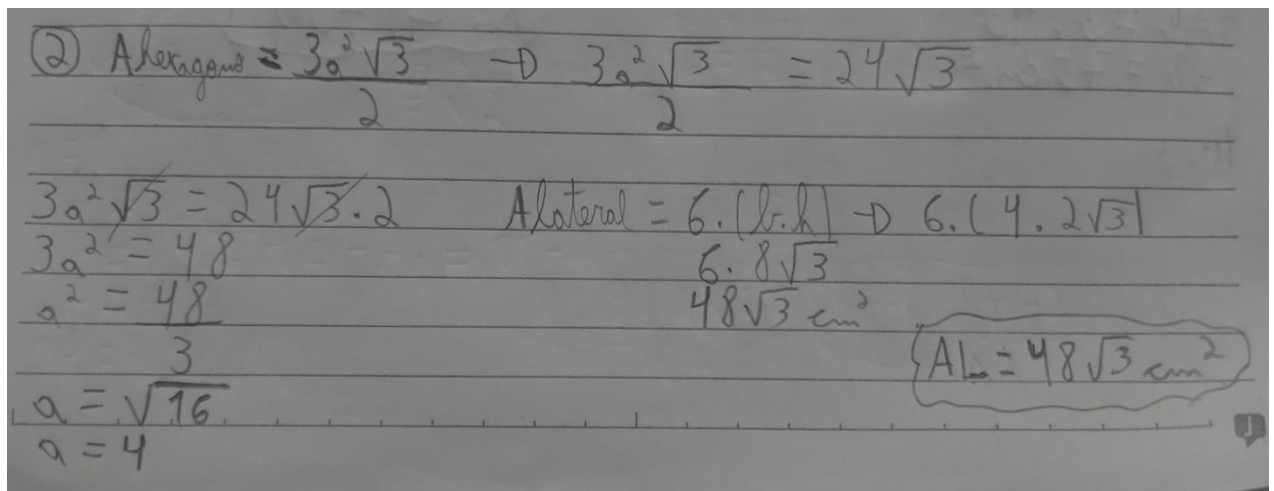 ② Ahexagono = 3a²√3/2 → 3a²√3/2 = 24√3
3a²√3 = 24√3.2
3a² = 48
a² = 48/3
a = √16
a = 4
Alateral = 6.(b.h) → 6.(4.2√3)
6.8√3
48√3 cm²
AL = 48√3 cm²